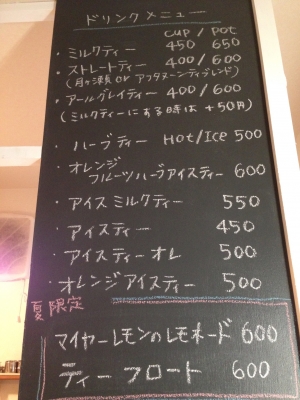 ドリンクメニュー
cup / pot
・ミルクティー 450 650
・ストレートティー 400/600
(月ヶ瀬 or アフタヌーンティブレンド)
・アールグレイティー 400/600
(ミルクティーにする時は +50円)
・ハーブティー Hot/Ice 500
・オレンジ
フルーツハーブアイスティー 600
・アイスミルクティー 550
・アイスティー 450
・アイスティーオレ 500
・オレンジアイスティー 500
夏限定
マイヤーレモンのレモネード 600
ティーフロート 600